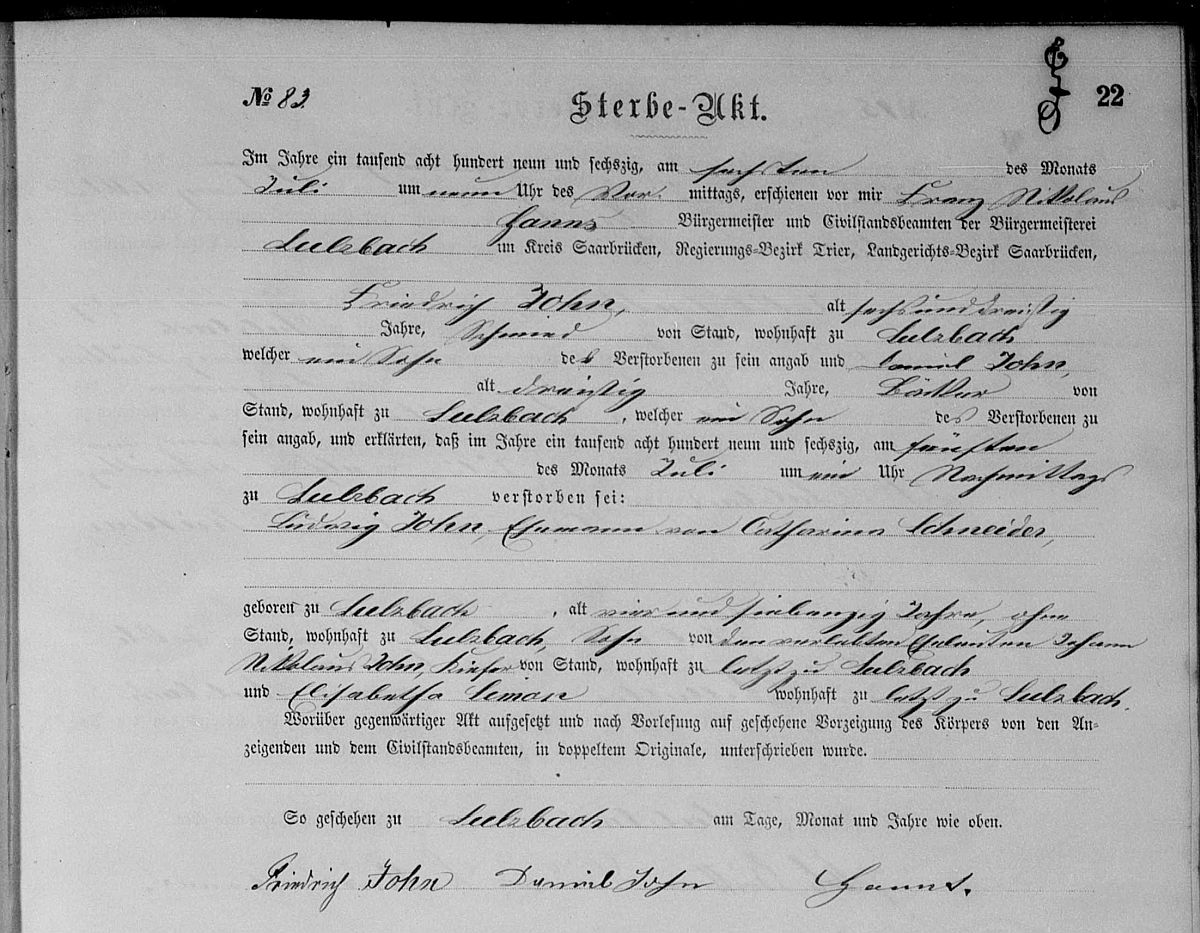 № 83 Sterbe-Akt. 22
Im Jahre ein tausend acht hundert neun und sechszig, am sechsten des Monats
Juli um neun Uhr des Vor mittags, erschienen vor mir Franz Nikolaus
Hanns Bürgermeister und Civilstandsbeamten der Bürgermeisterei
Sulzbach im Kreis Saarbrücken, Regierungs-Bezirk Trier, Landgerichts-Bezirk Saarbrücken,
Friedrich John, alt sechsunddreißig
Jahre, Schmied von Stand, wohnhaft zu Sulzbach
welcher ein Sohn des Verstorbenen zu sein angab und Daniel John,
alt dreißig Jahre, Bäcker von
Stand, wohnhaft zu Sulzbach, welcher ein Sohn des Verstorbenen zu
sein angab, und erklärten, daß im Jahre ein tausend acht hundert neun und sechszig, am fünften
des Monats Juli um ein Uhr Nachmittags
zu Sulzbach verstorben sei:
Ludwig John, Ehemann von Catharina Schneider,
geboren zu Sulzbach, alt vier und siebenzig Jahre, ohne
Stand, wohnhaft zu Sulzbach, Sohn von den verlebten Eheleuten Johann
Nikolaus John, Kiefer von Stand, wohnhaft zu letzt zu Sulzbach
und Elisabetha Simon wohnhaft zu letzt zu Sulzbach.
Worüber gegenwärtiger Akt aufgesetzt und nach Vorlesung auf geschehene Vorzeigung des Körpers von den An-
zeigenden und dem Civilstandsbeamten, in doppeltem Originale, unterschrieben wurde.
So geschehen zu Sulzbach am Tage, Monat und Jahre wie oben.
Friedrich John Daniel John Hanns.